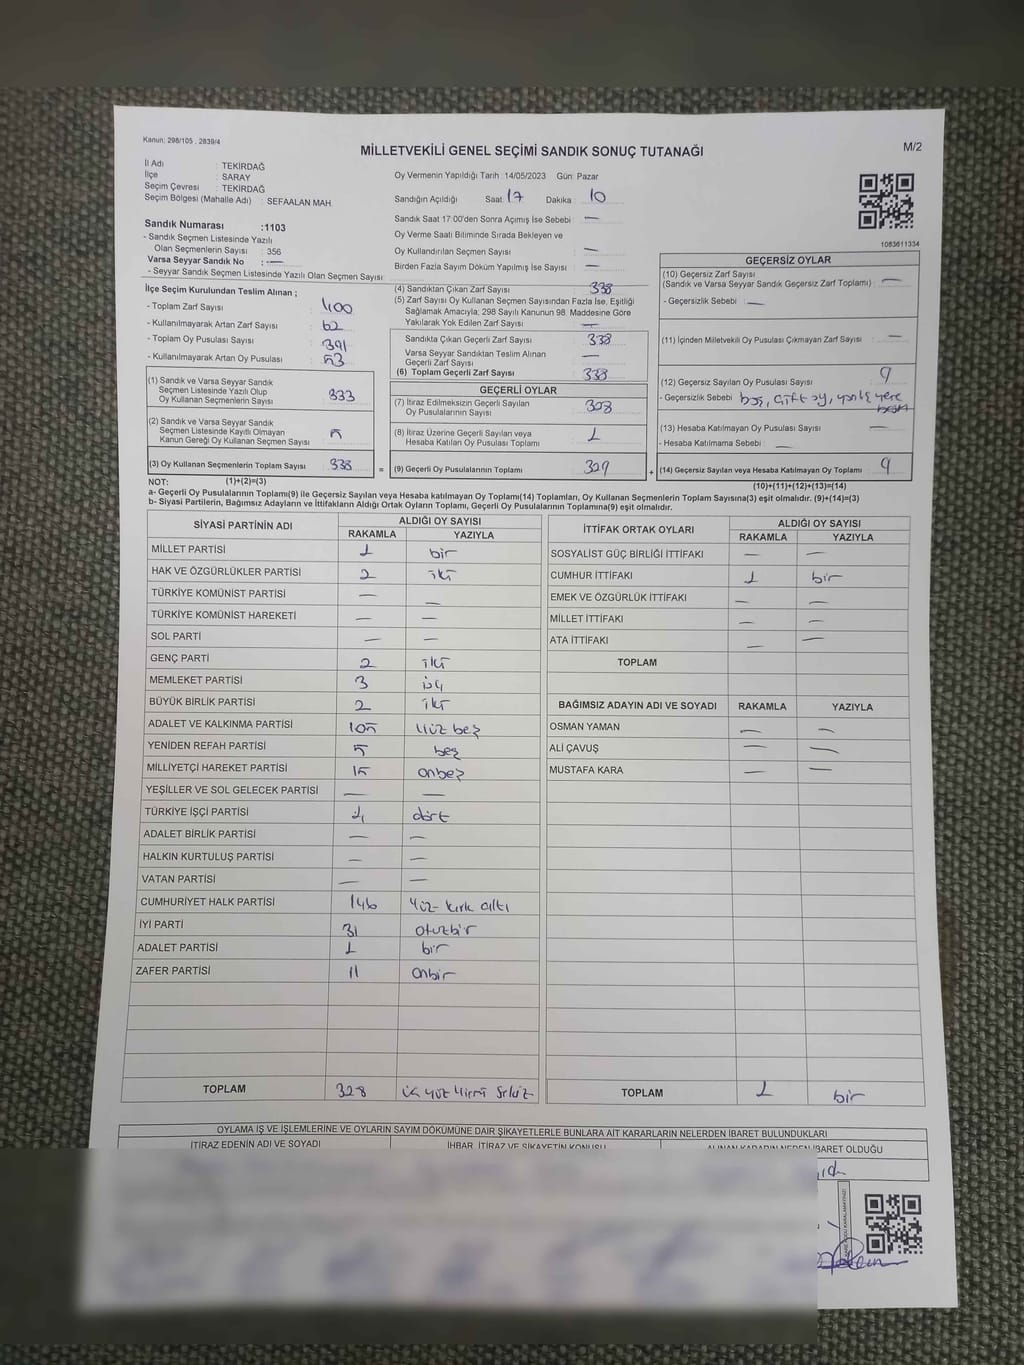 Kanun: 298/105 , 2839/4
MİLLETVEKİLİ GENEL SEÇİMİ SANDIK SONUÇ TUTANAĞI
M/2
İl Adı : TEKİRDAĞ
İlçe : SARAY
Seçim Çevresi : TEKİRDAĞ
Seçim Bölgesi (Mahalle Adı) : SEFAALAN MAH.
Oy Vermenin Yapıldığı Tarih :14/05/2023 Gün: Pazar
Sandığın Açıldığı Saat: 17 Dakika : 10
Sandık Saat 17:00'den Sonra Açılmış İse Sebebi : —
Oy Verme Saati Bitiminde Sırada Bekleyen ve
Oy Kullandırılan Seçmen Sayısı : —
Birden Fazla Sayım Döküm Yapılmış İse Sayısı : —
1083611334
Sandık Numarası :1103
- Sandık Seçmen Listesinde Yazılı
Olan Seçmenlerin Sayısı : 356
Varsa Seyyar Sandık No : —
- Seyyar Sandık Seçmen Listesinde Yazılı Olan Seçmen Sayısı:
İlçe Seçim Kurulundan Teslim Alınan ;
- Toplam Zarf Sayısı : 400
- Kullanılmayarak Artan Zarf Sayısı : 62
- Toplam Oy Pusulası Sayısı : 391
- Kullanılmayarak Artan Oy Pusulası : 53
(1) Sandık ve Varsa Seyyar Sandık
Seçmen Listesinde Yazılı Olup
Oy Kullanan Seçmenlerin Sayısı : 333
(2) Sandık ve Varsa Seyyar Sandık
Seçmen Listesinde Kayıtlı Olmayan
Kanun Gereği Oy Kullanan Seçmen Sayısı : 5
(3) Oy Kullanan Seçmenlerin Toplam Sayısı : 338
(4) Sandıktan Çıkan Zarf Sayısı : 338
(5) Zarf Sayısı Oy Kullanan Seçmen Sayısından Fazla İse, Eşitliği
Sağlamak Amacıyla; 298 Sayılı Kanunun 98. Maddesine Göre
Yakılarak Yok Edilen Zarf Sayısı : —
Sandıkta Çıkan Geçerli Zarf Sayısı : 338
Varsa Seyyar Sandıktan Teslim Alınan
Geçerli Zarf Sayısı : —
(6) Toplam Geçerli Zarf Sayısı : 338
GEÇERLİ OYLAR
(7) İtiraz Edilmeksizin Geçerli Sayılan
Oy Pusulalarının Sayısı : 328
(8) İtiraz Üzerine Geçerli Sayılan veya
Hesaba Katılan Oy Pusulası Toplamı : 1
= (9) Geçerli Oy Pusulalarının Toplamı : 329
GEÇERSİZ OYLAR
(10) Geçersiz Zarf Sayısı
(Sandık ve Varsa Seyyar Sandık Geçersiz Zarf Toplamı) : —
- Geçersizlik Sebebi : —
(11) İçinden Milletvekili Oy Pusulası Çıkmayan Zarf Sayısı : —
(12) Geçersiz Sayılan Oy Pusulası Sayısı : 9
- Geçersizlik Sebebi : boş, çift oy, yanlış yere
(13) Hesaba Katılmayan Oy Pusulası Sayısı : —
- Hesaba Katılmama Sebebi : —
+ (14) Geçersiz Sayılan veya Hesaba Katılmayan Oy Toplamı : 9
NOT: (1)+(2)=(3)
(10)+(11)+(12)+(13)=(14)
a- Geçerli Oy Pusulalarının Toplamı(9) ile Geçersiz Sayılan veya Hesaba katılmayan Oy Toplamı(14) Toplamları, Oy Kullanan Seçmenlerin Toplam Sayısına(3) eşit olmalıdır. (9)+(14)=(3)
b- Siyasi Partilerin, Bağımsız Adayların ve İttifakların Aldığı Ortak Oyların Toplamı, Geçerli Oy Pusulalarının Toplamına(9) eşit olmalıdır.
SİYASİ PARTİNİN ADI
ALDIĞI OY SAYISI
RAKAMLA YAZIYLA
MİLLET PARTİSİ 1 bir
HAK VE ÖZGÜRLÜKLER PARTİSİ 2 iki
TÜRKİYE KOMÜNİST PARTİSİ — —
TÜRKİYE KOMÜNİST HAREKETİ — —
SOL PARTİ — —
GENÇ PARTİ 2 iki
MEMLEKET PARTİSİ 3 üç
BÜYÜK BİRLİK PARTİSİ 2 iki
ADALET VE KALKINMA PARTİSİ 105 yüz beş
YENİDEN REFAH PARTİSİ 5 beş
MİLLİYETÇİ HAREKET PARTİSİ 15 onbeş
YEŞİLLER VE SOL GELECEK PARTİSİ — —
TÜRKİYE İŞÇİ PARTİSİ 4 dört
ADALET BİRLİK PARTİSİ — —
HALKIN KURTULUŞ PARTİSİ — —
VATAN PARTİSİ — —
CUMHURİYET HALK PARTİSİ 146 Yüz-kırk altı
İYİ PARTİ 31 otuzbir
ADALET PARTİSİ 1 bir
ZAFER PARTİSİ 11 onbir
TOPLAM 328 üç yüz yirmi sekiz
İTTİFAK ORTAK OYLARI
ALDIĞI OY SAYISI
RAKAMLA YAZIYLA
SOSYALİST GÜÇ BİRLİĞİ İTTİFAKI — —
CUMHUR İTTİFAKI 1 bir
EMEK VE ÖZGÜRLÜK İTTİFAKI — —
MİLLET İTTİFAKI — —
ATA İTTİFAKI — —
TOPLAM
BAĞIMSIZ ADAYIN ADI VE SOYADI RAKAMLA YAZIYLA
OSMAN YAMAN — —
ALİ ÇAVUŞ — —
MUSTAFA KARA — —
TOPLAM 1 bir
OYLAMA İŞ VE İŞLEMLERİNE VE OYLARIN SAYIM DÖKÜMÜNE DAİR ŞİKAYETLERLE BUNLARA AİT KARARLARIN NELERDEN İBARET BULUNDUKLARI
İTİRAZ EDENİN ADI VE SOYADI İHBAR, İTİRAZ VE ŞİKAYETİN KONUSU ALINAN KARARIN NEDEN İBARET OLDUĞU